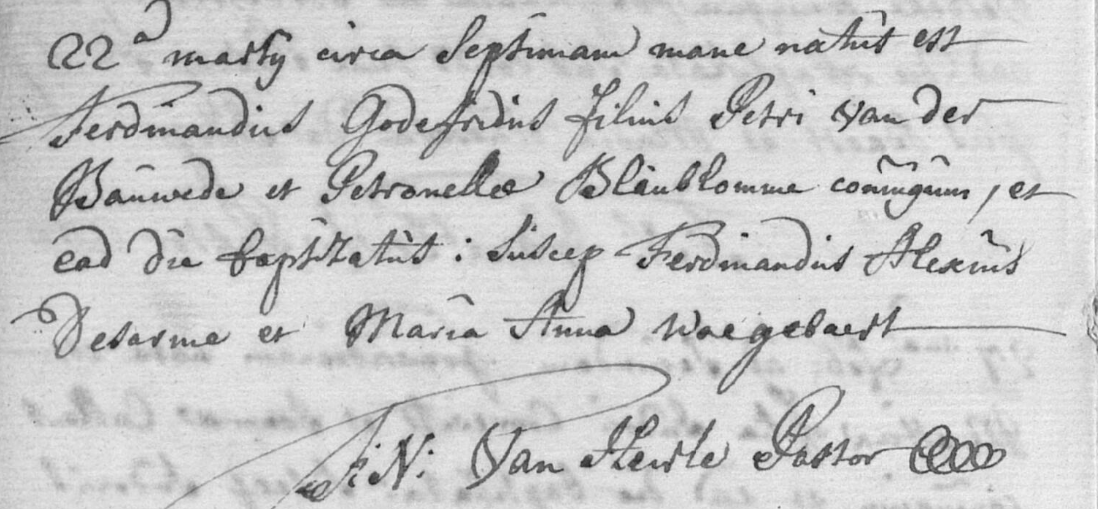 22a martij circa Septimam mane natus est
Ferdinandus Godefridus filius Petri van der
Bauwede et Petronellæ Blaublomme coniugum, et
ead die baptizatus : Suscep Ferdinandus Alexius
Desarme et Maria Anna Waegebaert
J: N: Van Heule Pastor